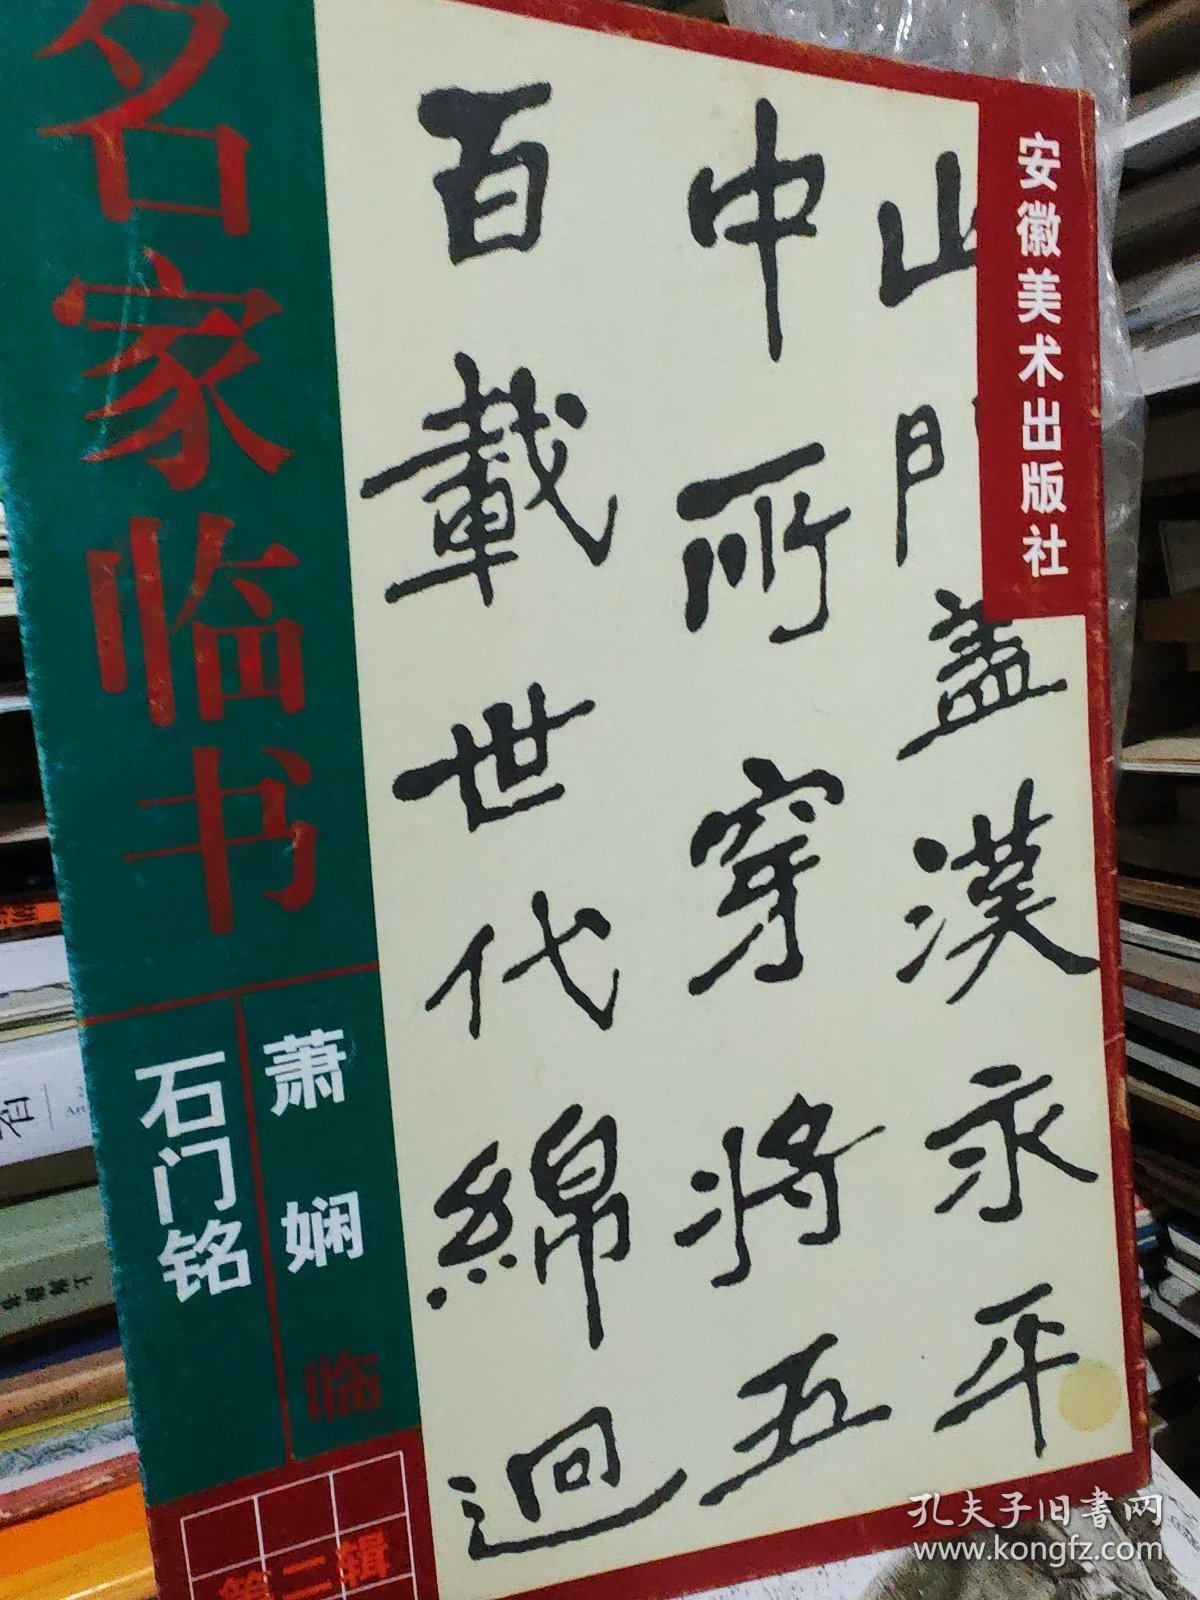 名家临书
萧娴临
石门铭
第二辑
安徽美术出版社
山门盖漢永平
中所穿将五
百載世代綿迴
孔夫子旧書网
www.kongfz.com